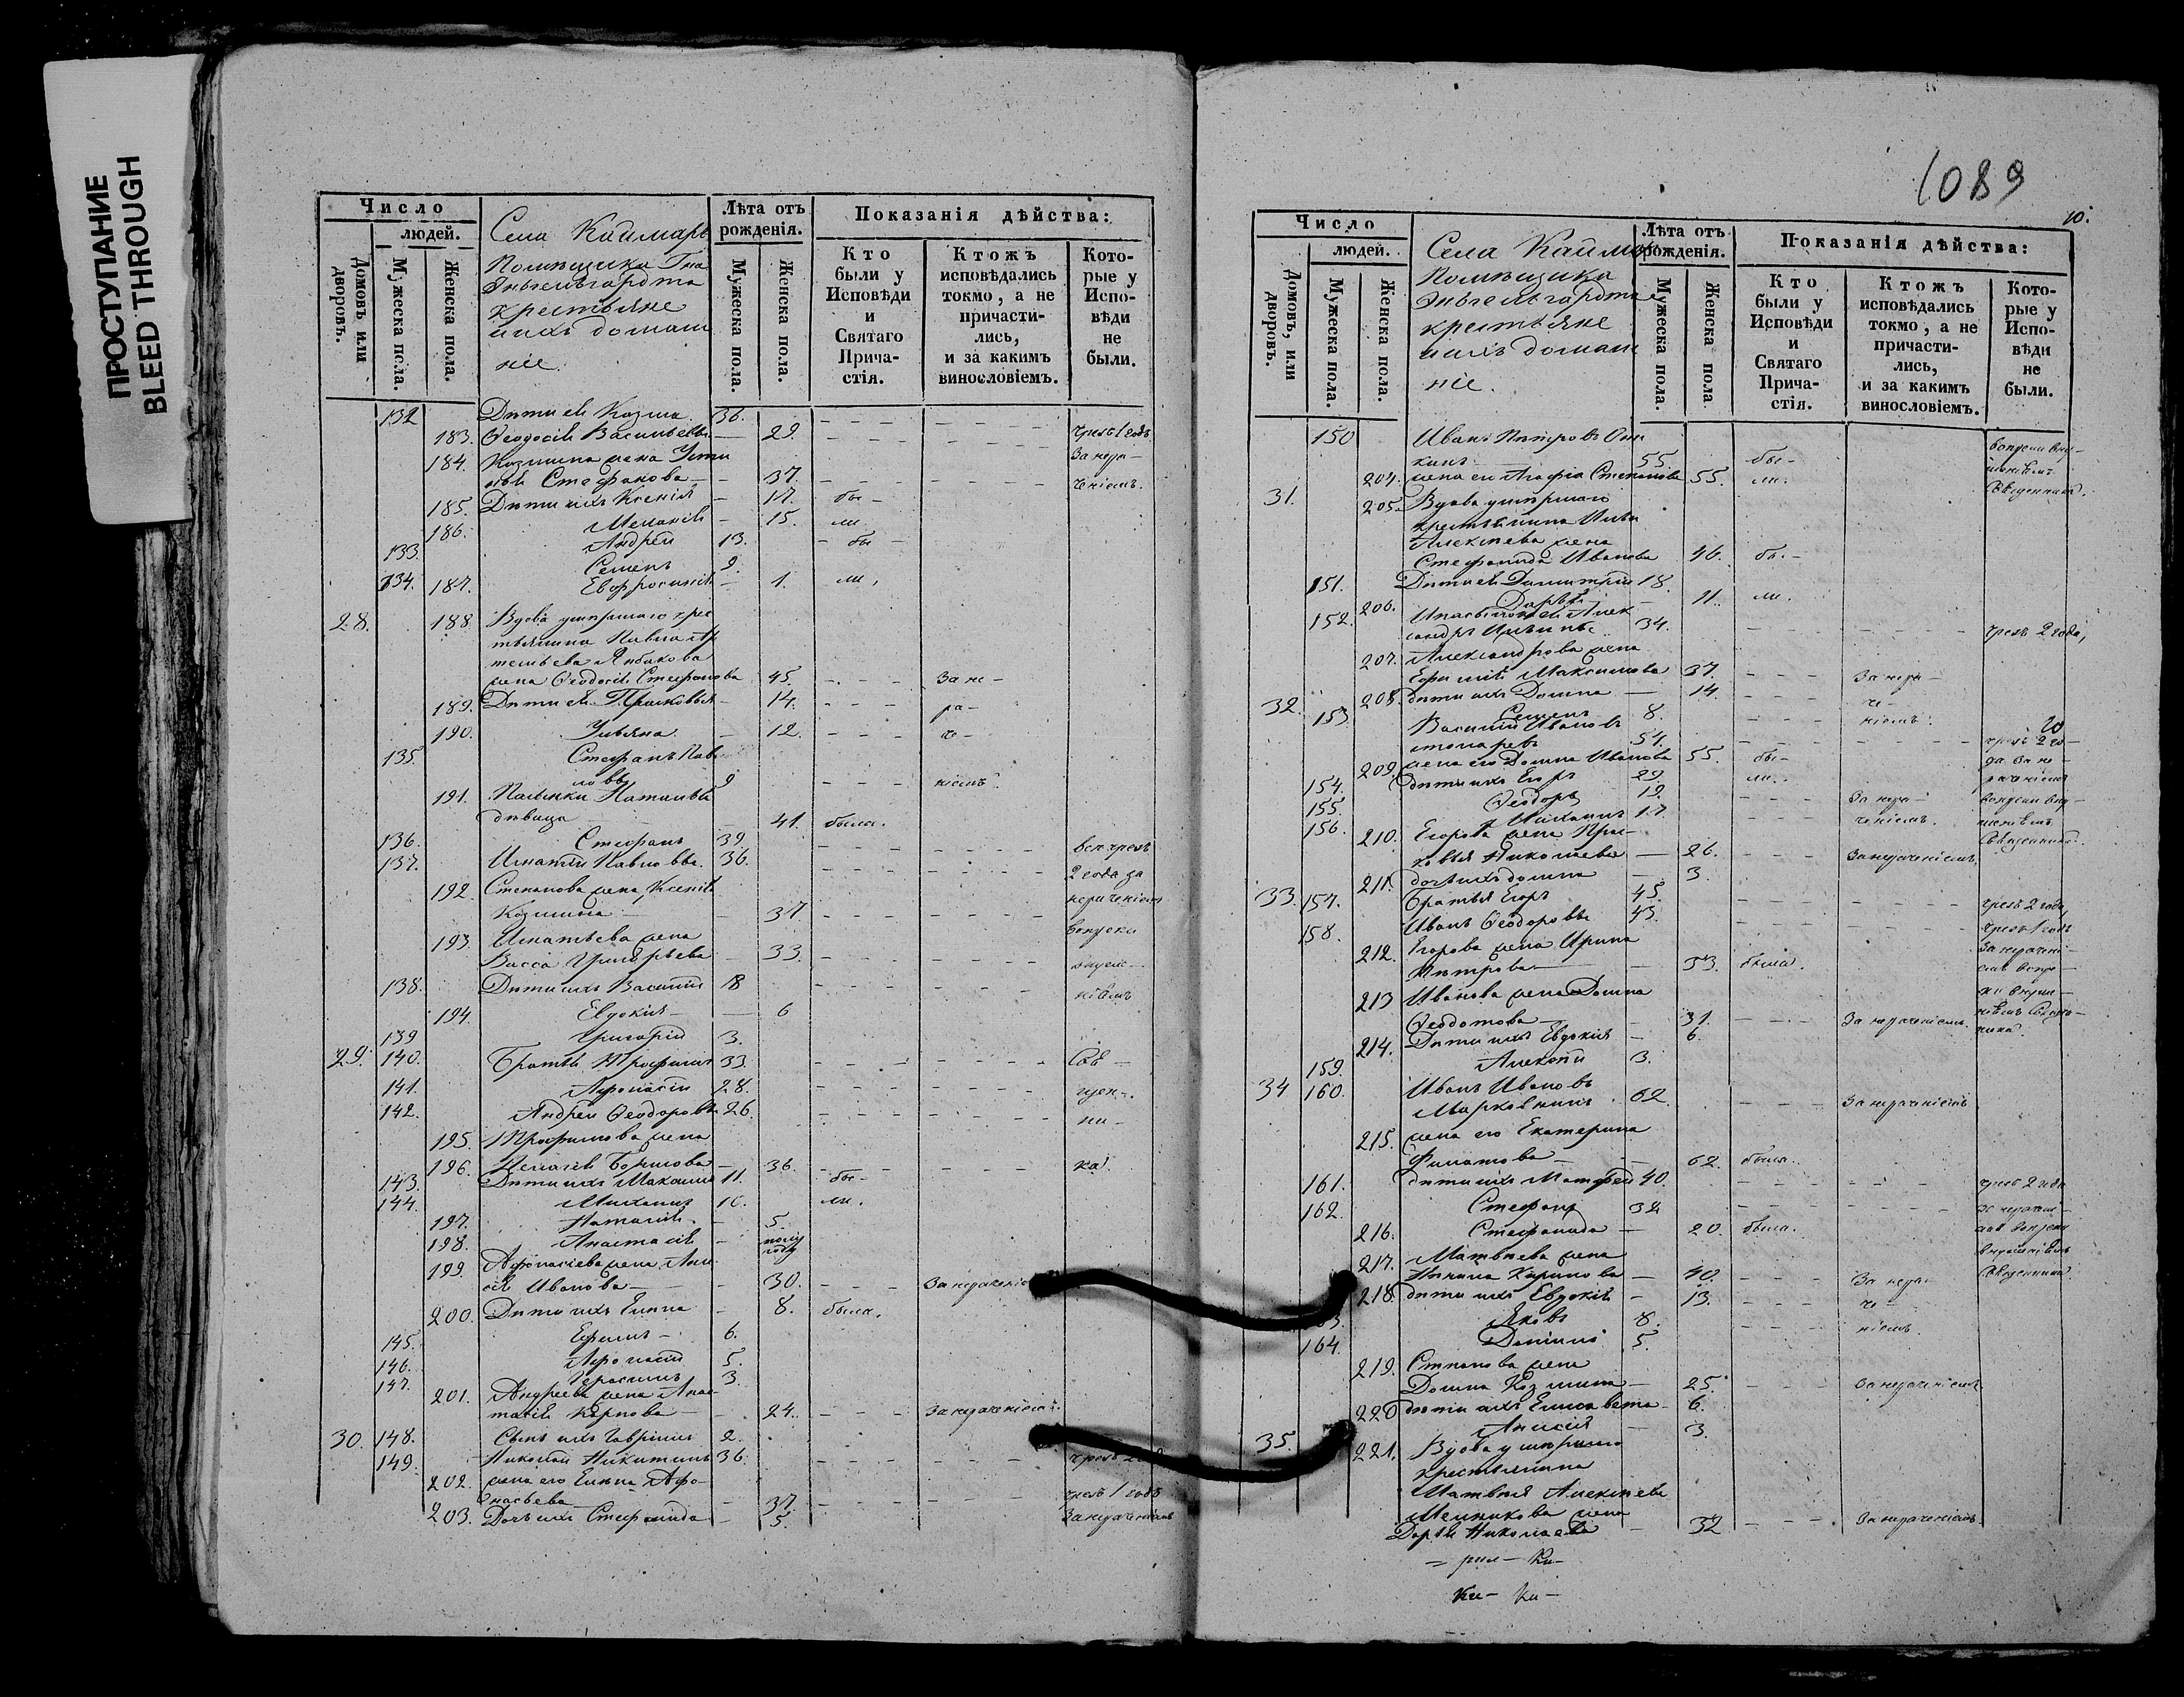 ПРОСТУПАНИЕ
BLEED THROUGH
Число
людей.
Домовъ или дворовъ.
Мужеска пола.
Женска пола.
Села Каймаръ
Помѣщика Гна
Энгельгардта
крестьяне
ихъ домаш
ніе.
Лѣта отъ рожденія.
Мужеска пола.
Женска пола.
Показанія дѣйства:
Кто были у Исповѣди и Святаго Прича-стія.
Ктожъ исповѣдались токмо, а не причасти-лись, и за какимъ винословіемъ.
Кото-рые у Испо-вѣди не были.
132 Дѣти ея Козма 36.
183. Ѳеодосія Васильева — 29. чрезъ 1 годъ
184. Козмина жена Усти За нера-
нія Стефанова — 37. ченіемъ.
185. Дѣти ихъ Ксенія — 17. бы-
186. Меланія — 15. ли
133. Андрей 13. бы-
134. Семенъ 9.
187. Евфросинія — 1. ли.
28. 188. Вдова умершаго крес
тьянина Павла Ар
темьева
жена Ѳеодосія Стефанова 45. За не-
189. Дѣти ея Прасковья — 14. ра-
190. Ульяна — 12. че-
135. Стефанъ Пав
ловъ 9 ніемъ.
191. Наталья
дѣвица 41. была.
136. Стефанъ 39. все чрезъ
137. Игнатій Павловы. 36. 2 года за
192. Степанова жена Ксенія нераченіемъ
Козмина — 37.
193. Игнатьева жена
Васса Григорьева — 33.
138. Дѣти ихъ Василій 18
194. Евдокія — 6
139 Григорій 3.
29. 140. Братья Трофимъ 33. Свя-
141. Афонасій 28. щен-
142. Андрей Ѳеодоровы 26. ни-
195. Трофимова жена
196. Пелагія Борисова — 36. ка.
143. Дѣти ихъ Максимъ 11. бы-
144. Михаилъ 10. ли.
197. Наталія. — 5.
198. Анастасія — полу году
199. Афонасіева жена Ани
сія Иванова — 30. За нераченіе
200. Дѣти ихъ Елена — 8. была.
145. Ефимъ — 6.
146. Афонасій 5.
147. Герасимъ 3.
201. Андреева жена Анас
тасія Карпова — 24. За нераченіемъ.
30. 148. Сынъ ихъ Гаврилъ 2.
149. Николай Никитинъ 36. чрезъ
202. жена его Елена Афо-
насьева — 37. чрезъ 1 годъ
203. Дочь ихъ Стефанида — 5. За нераченіемъ
1089
10.
Число
людей.
Домовъ, или дворовъ.
Мужеска пола.
Женска пола.
Села Каймаръ
Помѣщика
Энгельгардта
крестьяне
ихъ домаш
ніе.
Лѣта отъ рожденія.
Мужеска пола.
Женска пола
Показанія дѣйства:
Кто были у Исповѣди и Святаго Прича-стія.
Ктожъ исповѣдались токмо, а не причасти-лись, и за какимъ винословіемъ.
Кото-рые у Испо-вѣди не были.
150 Иванъ Петровъ
55 бы-
204. жена его Агафія Степанова 55. ли. Священника.
31. 205. Вдова умершаго
крестьянина Ильи
Алексѣева жена
Стефанида Иванова 46. бы-
151. Дѣти ея Димитрій 18.
206. Дарья — 11. ли.
152. Алек
сандръ Ильинъ 34. чрезъ 2 года,
207. Александрова жена
Ефимія Максимова 37. За нера-
208. дѣти ихъ Домна — 14. че-
32. Семенъ 8. ніемъ.
153. Василій Ивановъ
54. чрезъ 2 го-
209. жена его Домна Иванова 55. бы- да за не-
154. дѣти ихъ Егоръ 29. ли. раченіемъ
155. Ѳеодоръ 19. За нера-
156. Михаилъ 17. ченіемъ.
210. Егорова жена Прас- Священника.
ковья Николаева — 26. За нераченіемъ.
211. дочь ихъ Домна — 3.
33. 157. Братья Егоръ 45. чрезъ 2 года,
158. Иванъ Ѳеодоровы 43. чрезъ 1 годъ
212. Егорова жена Ирина За нерачені-
Петрова — 53. была.
213 Иванова жена Домна
Ѳеодотова — 31. За нераченіемъ.
214. Дѣти ихъ Евдокія — 6.
159. Алексѣй 3.
34 160. Иванъ Ивановъ
62. За нераченіемъ
215. жена его Екатерина
Филатова — 62. была.
161. дѣти ихъ Матвѣй 40. чрезъ 2 года
162. Стефанъ 32
216. Стефанида — 20. была.
217. Матвѣева жена
40. За нера- Священника.
218. дѣти ихъ Евдокія — 13. че-
Яковъ 8. ніемъ.
164. Даніилъ 5.
219. Степанова жена
Домна Козмина — 25. За нераченіемъ
220 дѣти ихъ Елисавета — 6.
Анисія — 3.
35. 221. Вдова умершаго
крестьянина
Матвѣя Алексѣева
Мельникова жена
Дарья Николаева — 32 За нераченіемъ